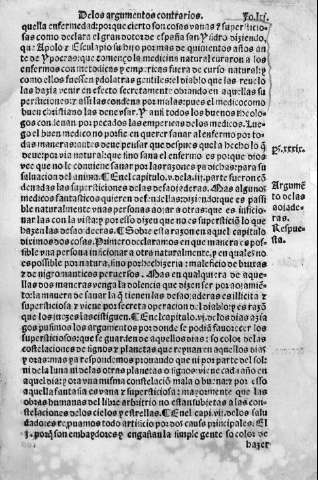 De los argumentos contrarios. Fo.lxj.
quella enfermedad: porque cierto son cosas vanas y supersticio
sas como declara el gran dotor de españa san ysidro diziendo,
que Apolo y Esculapio su hijo por mas de quinientos años an
te de Ypocras: que començo la medicina natural curaron a los
enfermos con metodicas y empericas fuera de curso natural: y
como ellos fuessen ydolatras gentiles: el diablo que las reuelo
las hazia venir en efecto secretamente: obrando en aquellas su
persticiones: y assi las condena por malas: pues el medico como
buen christiano las deue assi
gos condenan por pecados las empericas de los medicos. Lue
go el buen medico no porfie en querer sanar al enfermo por to
das maneras: antes deue pensar que despues que la a hecho lo que
deue: por via natural: que sino sana el enfermo es porque dios
vee que no le conuiene sanar por las razones ya dichas: para sa
luacion del anima. En el capitulo.v. dela.iij. parte fueron con
denadas las supersticiones de las desaojaderas. Mas algunos
medicos fantasticos quieren defendellas: diziendo: que es possi
ble naturalmente vnas personas aojar a otras: que es inficio
nar las con la vista: y por esso dizen que no es superstició lo que
hazen las desaojaderas. Sobre esta razon en aquel capitulo
diximos dos cosas. Primero declaramos en que manera es pos
sible vna persona inficionar a otra naturalmente, y en quales no
es possible por natura, sino por hechizeria: maleficio de bruxos
y de nigromanticos peruersos. Mas en qualquiera de aque
llas dos maneras venga la dolencia que dizen ser por aojamien
to: la manera de sanar la que tienen las desaojaderas es illicita y
supersticiosa y viene por secreta operacion del diablo: y es razó
que los juezes las castiguen. En el capitulo.vj. de los dias azia
gos pusimos los argumentos por donde se podia fauorecer los
supersticiosos: que se guarden de aquellos dias: so color de las
costelaciones de signos y planetas que reynan en aquellos dias
y oras: mas ya respondimos prouando que ni por parte del sol:
ni dela luna ni de las otras planetas o signos: viene cada año en
aquel dia: y ora vna misma constelació mala o buena: y por esso
aquella fantasia es vana y supersticiosa: mayormente que las
obras humanas del libre arbitrio no estan subietas a las con
stelaciones de los cielos y estrellas. En el cap.vij. de los salu
dadores reprouamos todo artificio por dos causas principales. El
j. porque son embaydores y engañan la simple gente so color de
hazer
Ps.xxxix.
Argumẽ
to de las
aojade
ras.
Respue
sta.